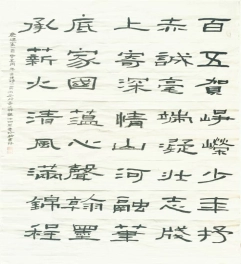 百五賀崢嶸少年抒
赤誠毫端凝壯志牋
上寄深情山河融筆
底家國蘊心聲翰墨
承薪火清風滿錦程